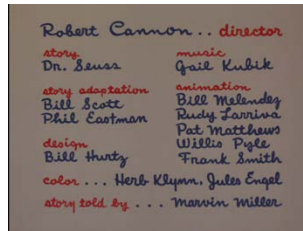 Robert Cannon .. director
story
Dr. Seuss
story adaptation
Bill Scott
Phil Eastman
design
Bill Hurtz
music
Gail Kubik
animation
Bill Melendez
Rudy Larriva
Pat Matthews
Willis Pyle
Frank Smith
color ... Herb Klynn, Jules Engel
story told by ... Marvin Miller